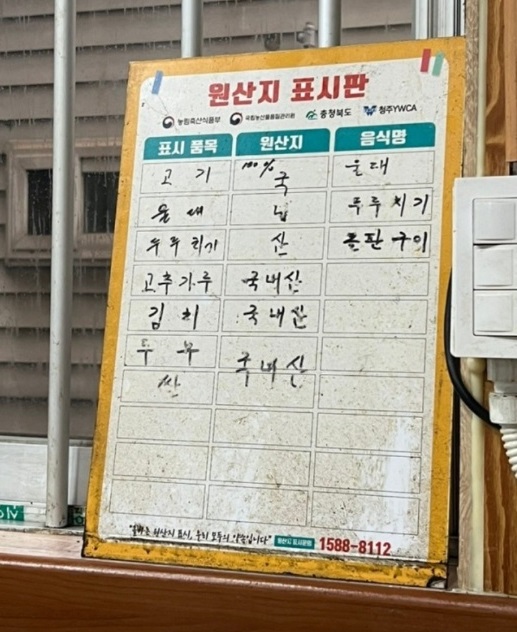 원산지 표시판
농림축산식품부 국립농산물품질관리원 충청북도 청주YWCA
표시 품목 원산지 음식명
고기 100% 국 울대
울대 내 두루치기
두루치기 산 돌판구이
고추가루 국내산
김치 국내산
두부 국내산
쌀
"올바른 원산지 표시, 우리 모두의 약속입니다" 원산지 표시문의 1588-8112